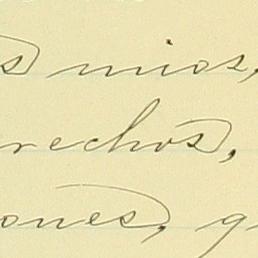 s mios,
rechos,
ones, q